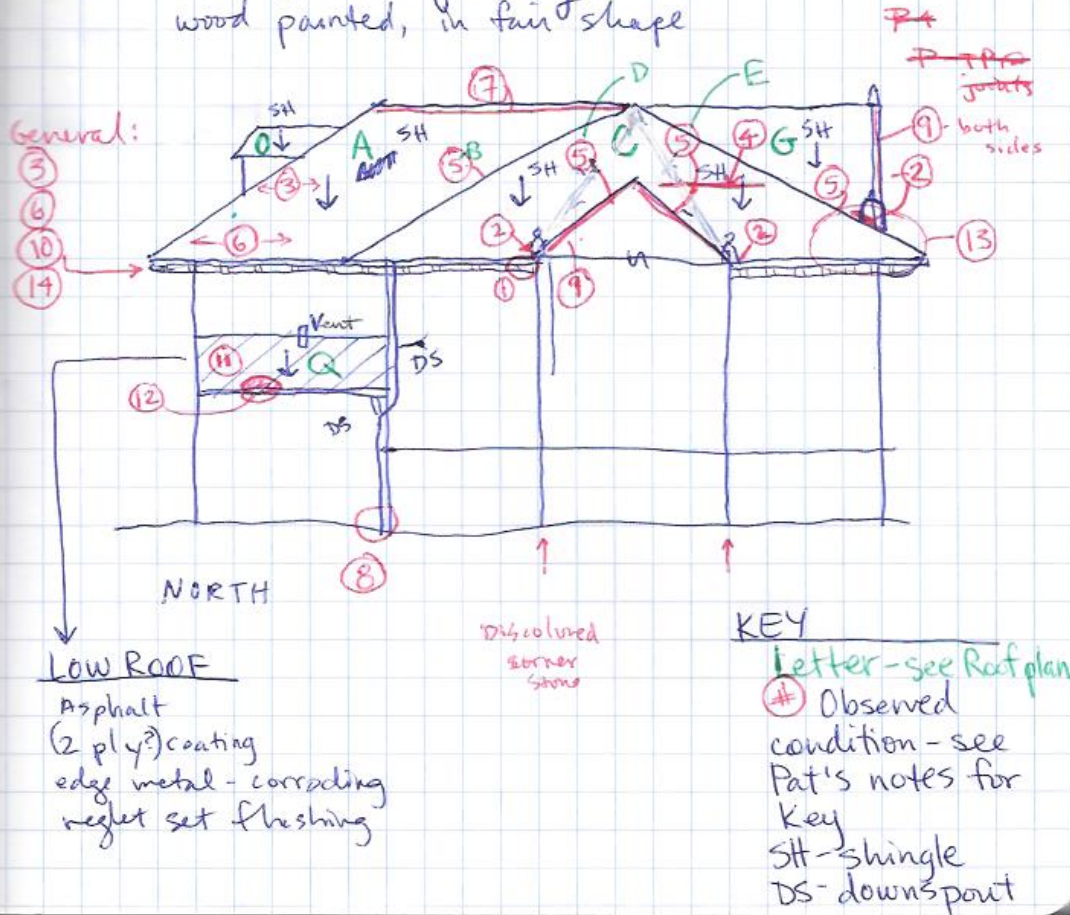 wood painted, in fair shape
P4
joints
General:
3
6
10
14
SH
O
A
SH
7
D
E
B
5
3
6
SH
5
C
5
4
SH
G
SH
5
2
9 - both
sides
13
2
2
1
9
Vent
11
Q
DS
12
DS
8
NORTH
Discoloured
corner
stone
LOW ROOF
Asphalt
(2 ply?) coating
edge metal - corroding
reglet set flashing
KEY
Letter - see Roof plan
# Observed
condition - see
Pat's notes for
Key
SH - shingle
DS - downspout